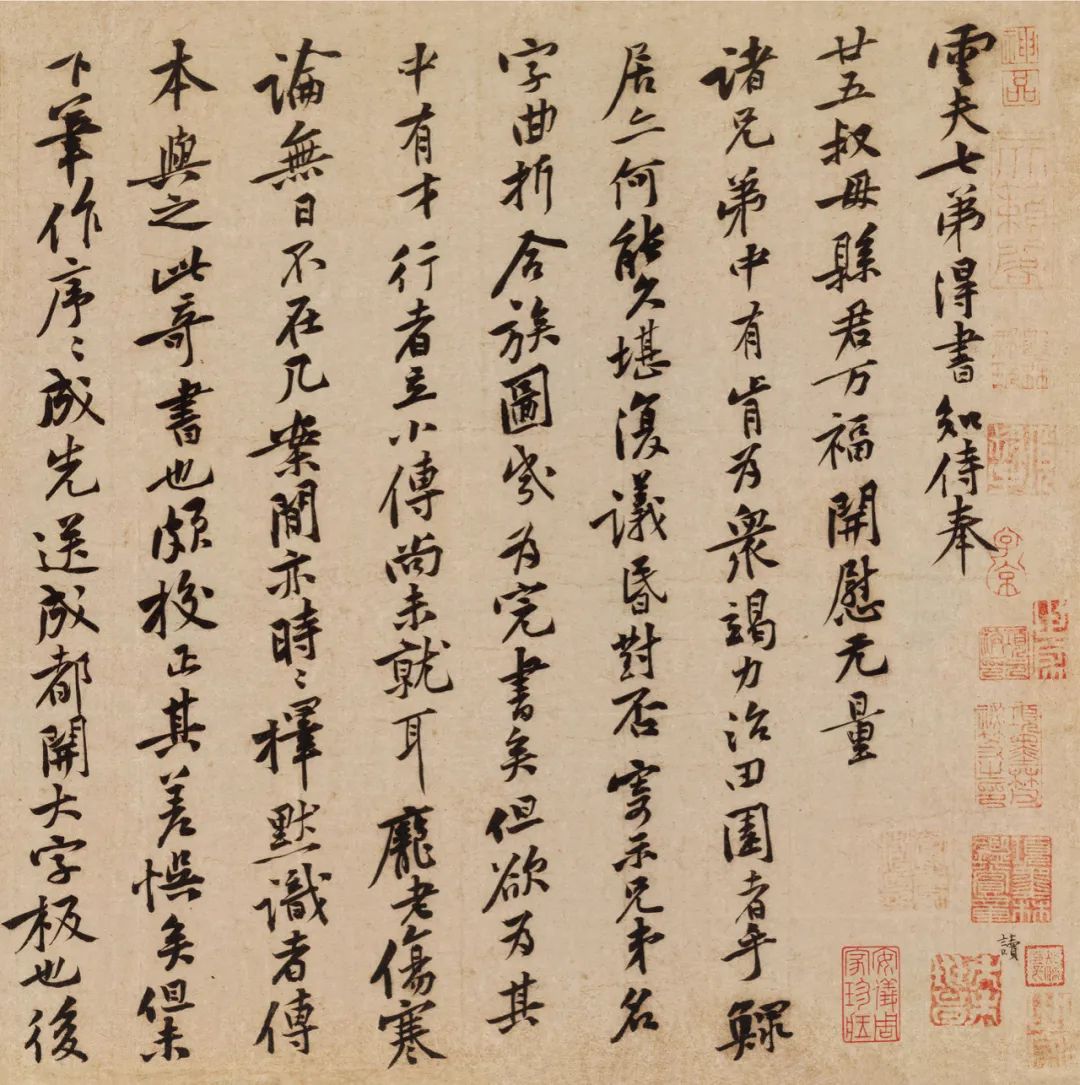 雲夫七弟得書知侍奉
廿五叔母縣君万福開慰无量
諸兄弟中有肯為衆竭力治田園者乎鰥
居亦何能久堪復議昏對否寄示兄弟名
字曲折合族圖幾為完書矣但欲為其
中有才行者立小傳尚未就耳龐老傷寒
論無日不在几案間亦時〻擇默識者傳
本與之此奇書也頗校正其差悮矣但未
下筆作序〻成先送成都開大字板也後
讀
安儀周家珍藏